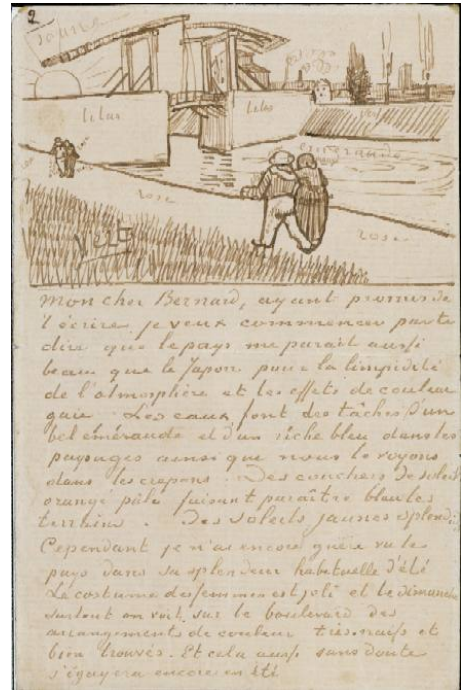 2
Jaune
lilas
lilas
emeraude
rose
rose
vert
Mon cher Bernard, ayant promis de
t'écrire je veux commencer par te
dire que le pays me parait aussi
beau que le Japon pour la limpidité
de l'atmosphère et les effets de couleur
gaie. Les eaux font des tâches d'un
bel éméraude et d'un riche bleu dans les
paysages ainsi que nous le voyons
dans les crepons. Des couchers de soleil
orangé pâle faisant paraître bleu les
terrains. Des soleils jaunes splendid
Cependant je n'ai encore guère vu le
pays dans sa splendeur habituelle d'été
Le costume des femmes est joli et le dimanche
surtout on voit sur le boulevard des
arrangements de couleur très naifs et
bien trouvés. Et cela aussi sans doute
s'égayera encore en été